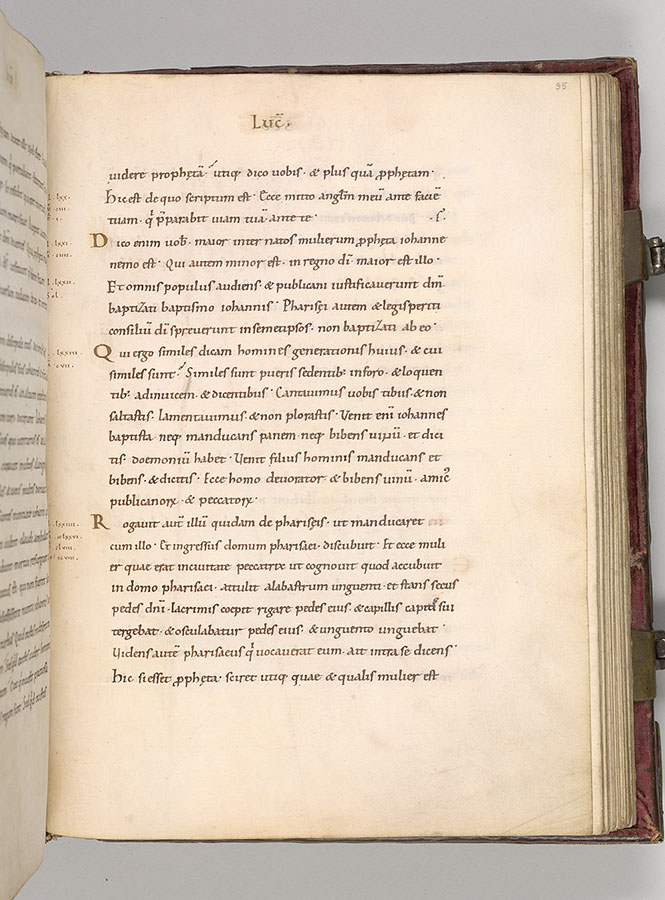 95
Luc̄.
uidere prophetā· utiq; dico uobis· & plus quā pphetam·
hic est de quo scriptum est· Ecce mitto anglm̄ meū ante faciē
tuam· q̄ p̄parabit uiam tuā· ante te·
Dico enim uob· maior inter natos mulierum ppheta iohanne
nemo est· Qui autem minor est· in regno dī· maior est illo·
Et omnis populus audiens· & publicani iustificauerunt dm̄·
baptizati baptismo iohannis· Pharisęi autem & legisperiti
consiliū dī spreuerunt in semetipsos· non baptizati ab eo·
Qui ergo similes dicam homines generationis huius· & cui
similes sunt· Similes sunt pueris sedentib; in foro· & loquen
tib; adinuicem· & dicentibus· Cantauimus uobis tibiis· & non
saltastis· lamentauimus· & non plorastis· Venit enī iohannes
baptista neq; manducans panem neq; bibens uinū· et dici
tis· doemoniū habet· Venit filius hominis manducans et
bibens· & dicitis· Ecce homo deuorator & bibens uinū· amic᷒
publicanoꝝ· & peccatoꝝ·
Rogauit aut̄ illū quidam de phariseis· ut manducaret
cum illo· Et ingressus domum pharisaei· discubuit· Et ecce muli
er quae erat in ciuitate peccatrix ut cognouit quod accubuit
in domo pharisaei· attulit alabastrum unguenti· et stans secus
pedes dnī· lacrimis coepit rigare pedes eius· & capillis capitis sui
tergebat· & osculabatur pedes eius· & unguento unguebat·
Videns autē pharisaeus q̄ uocauerat eum· ait intra se dicens·
hic si esset ppheta· sciret utiq; quae & qualis mulier est